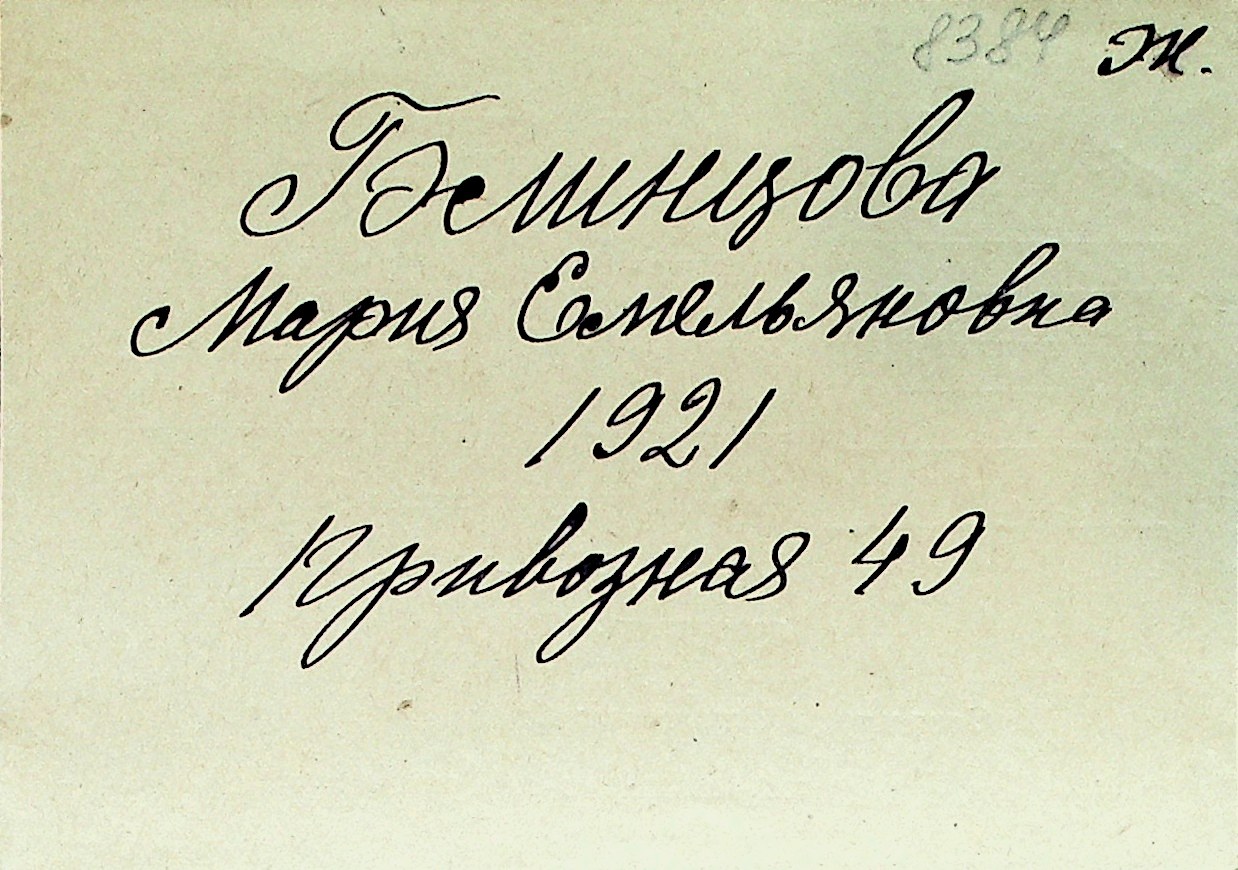 8384 Ж.
Белинцова
Мария Емельяновна
1921
Привозная 49